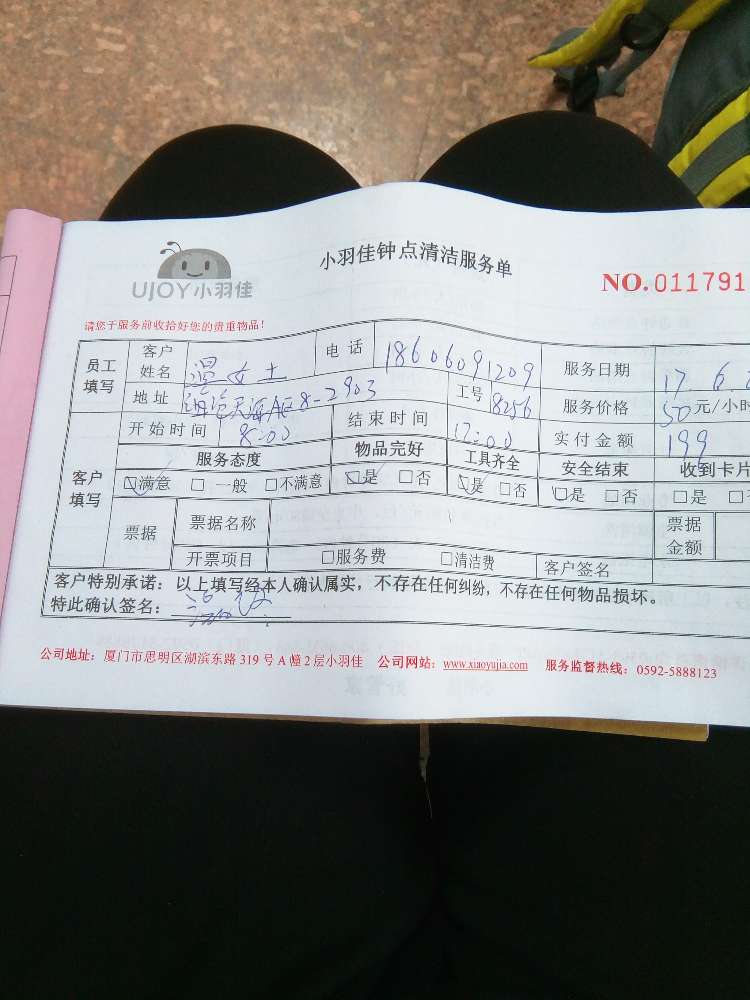 小羽佳钟点清洁服务单
UJOY小羽佳
NO.011791
请您于服务前收拾好您的贵重物品！
员工填写 客户姓名 温女士 电话 18606091209 服务日期 17.6.
地址 海A区8-2903 工号 8256 服务价格 50元/小时
客户填写 开始时间 8:00 结束时间 12:00 实付金额 199
服务态度 物品完好 工具齐全 安全结束 收到卡片
☑满意 □一般 □不满意 ☑是 □否 ☑是 □否 ☑是 □否 □是 □
票据 票据名称 票据金额
开票项目 □服务费 □清洁费 客户签名
客户特别承诺：以上填写经本人确认属实，不存在任何纠纷，不存在任何物品损坏。
特此确认签名：
公司地址：厦门市思明区湖滨东路319号A幢2层小羽佳 公司网站：www.xiaoyujia.com 服务监督热线：0592-5888123